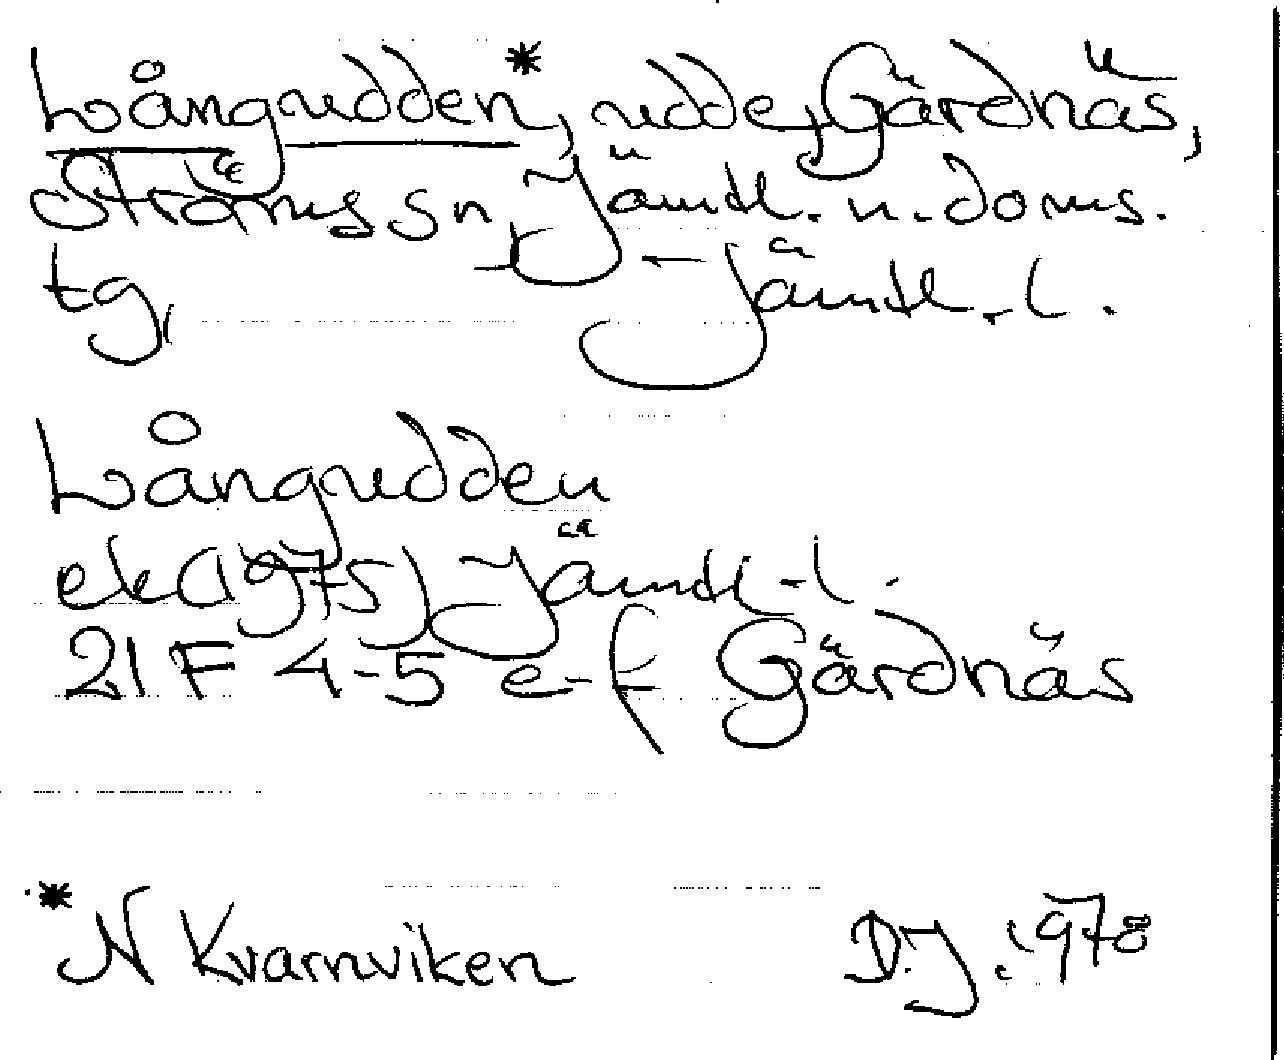 Långudden*, udde, Gärdnäs,
Ströms sn, Jämtl. n. doms.
tg, — Jämtl. l.
Långudden
ek (1975) Jämtl. l.
21 F 4-5 e-f Gärdnäs
* N Kvarnviken D.J. 1978